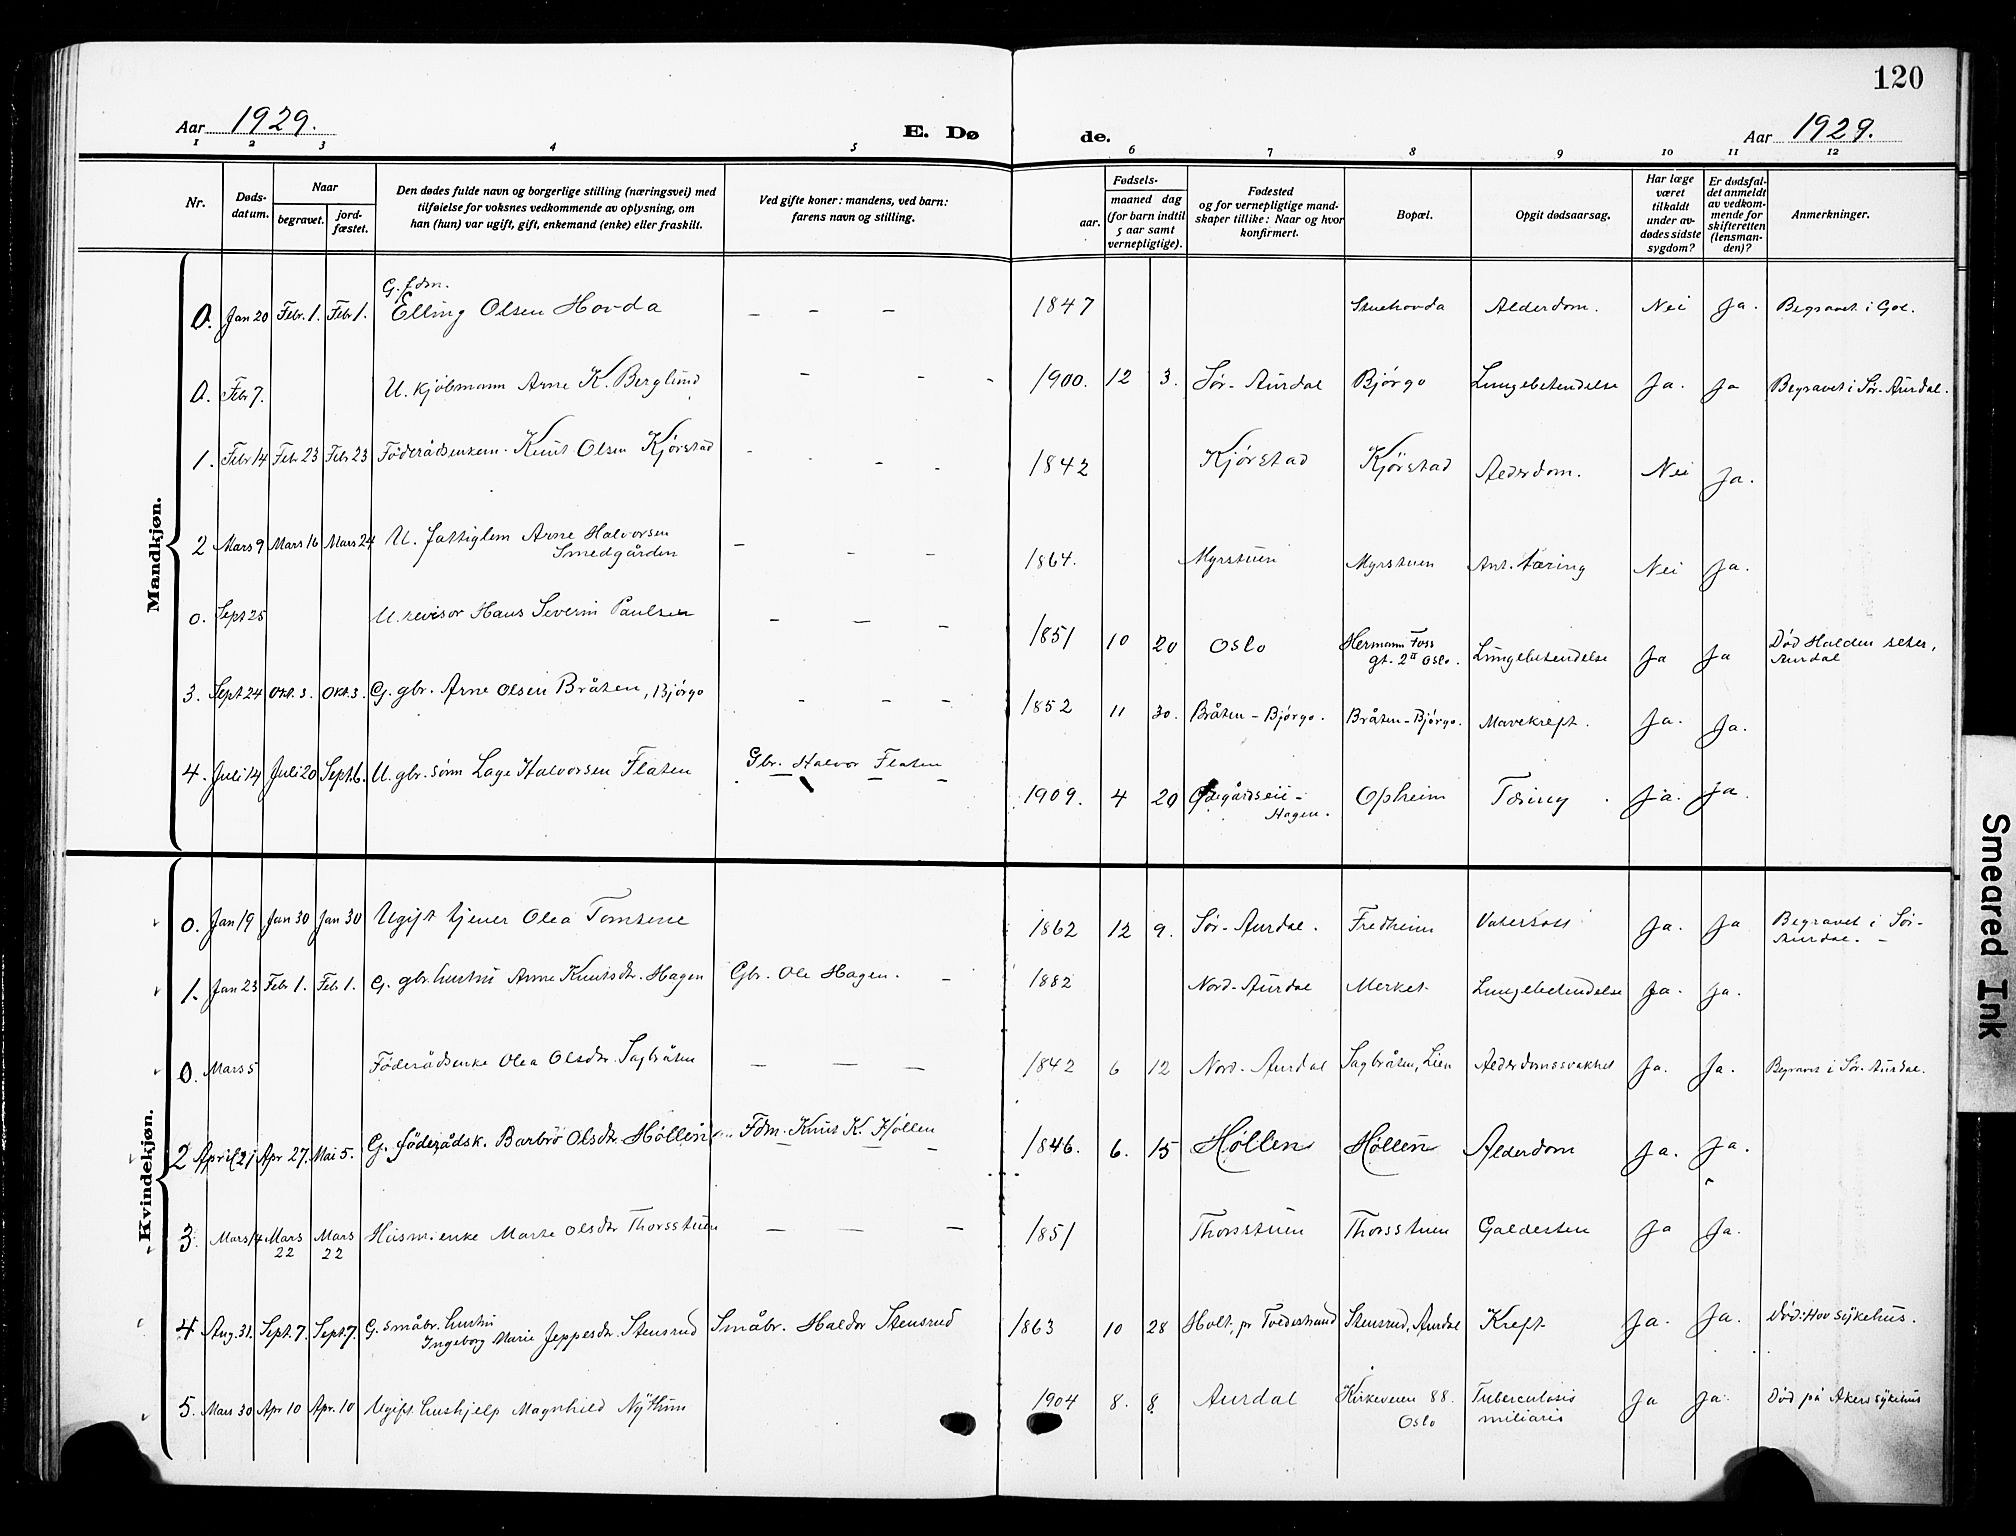 120
Aar 1929. E. Dø de. Aar 1929.
1 2 3 4 5 6 7 8 9 10 11 12
Nr. Døds-datum. Naar begravet. jord-fæstet. Den dødes fulde navn og borgerlige stilling (næringsvei) med tilføielse for voksnes vedkommende av oplysning, om han (hun) var ugift, gift, enkemand (enke) eller fraskilt. Ved gifte koner: mandens, ved barn: farens navn og stilling. Fødsels- aar. maaned dag (for barn indtil 5 aar samt vernepligtige). Fødested og for vernepligtige mand-skaper tillike: Naar og hvor konfirmert. Bopæl. Opgit dødsaarsag. Har læge været tilkaldt under av-dødes sidste sygdom? Er dødsfal-det anmeldt av vedkom-mende for skifteretten (lensman-den)? Anmerkninger.
Mandkjøn.
0. Jan 20 Febr. 1. Febr 1. G. fdm. Elling Olsen Hovda – – – 1847 Stuehovda Alderdom. Nei Ja. Begravet i Gol.
0. Febr 7. U. kjøbmann Arne K. Berglund – – – 1900. 12 3. Sør-Aurdal Bjørgo Lungebetendelse Ja. Ja Begravet i Sør-Aurdal.
1. Febr 14 Febr 23 Febr 23 Föderådsenkem. Knut Olsen Kjørstad – – – 1842 Kjørstad Kjørstad Alderdom. Nei Ja.
2 Mars 9 Mars 16 Mars 24 U. fattiglem Arne Halvorsen Smedgården – – – 1864. Myrstuen Myrstuen Ant. tæring Nei Ja.
0. Sept 25 U. revisor Hans Severin Paulsen – – – 1851 10 20 Oslo Hermann Foss gt. 2 II Oslo. Lungebetendelse Ja Ja Død Halden seter, Aurdal
3. Sept 24 Okt. 3. Okt. 3. G. gbr. Arne Olsen Bråten, Bjørgo – – – 1852 11 30. Bråten-Bjørgo. Bråten-Bjørgo. Mavekreft. Ja. Ja.
4. Juli 14 Juli 20 Sept. 6. U. gbr. sønn Lage Halvorsen Flaten Gbr. Halvor Flaten 1909. 4 20 Opegårdseie- Hagen. Opheim Tæring. Ja. Ja.
Kvindekjøn.
0. Jan 19 Jan 30 Jan 30 Ugift tjener Olea Tomtene 1862 12 9. Sør-Aurdal. Fredheim Vatersott Ja. Ja Begravet i Sør-Aurdal. –
1. Jan 23 Febr 1. Febr 1. G. gbr. hustru Anne Knutsdtr. Hagen Gbr. Ole Hagen. – 1882 Nord-Aurdal Merket Lungebetendelse Ja. Ja.
0. Mars 5 Föderådsenke Olea Olsdtr. Sagbråten – – – 1842 6 12 Nord-Aurdal Sagbråten, Lien Alderdomssvakhet Ja. Ja. Begravet i Sør-Aurdal.
2 April 21 Apr 27. Mai 5. G. föderådsk. Barbro Olsdtr. Høllen Fdm. Knut K. Høllen 1846. 6. 15 Høllen Høllen Alderdom Ja. Ja.
3. Mars 14 Mars 22 Mars 22 Husm.enke Marte Olsdtr Thorsstuen – – – 1851 Thorsstuen Thorsstuen Galdesten Ja Ja.
4 Aug. 31. Sept. 7. Sept. 7. G. småbr. hustru Ingeborg Marie Jeppesdtr. Stensrud Småbr. Haldor Stensrud 1863 10 28 Holt, pr Tvedestrand Stensrud, Aurdal Kreft. Ja. Ja. Død i Hov sykehus.
5. Mars 30 Apr 10 Apr. 10 Ugift hushjelp Magnhild Nythun 1904 8. 8. Aurdal Kirkeveien 88. Oslo Tuberculosis miliaris Ja Ja. Død på Aker sykehus
Smeared Ink